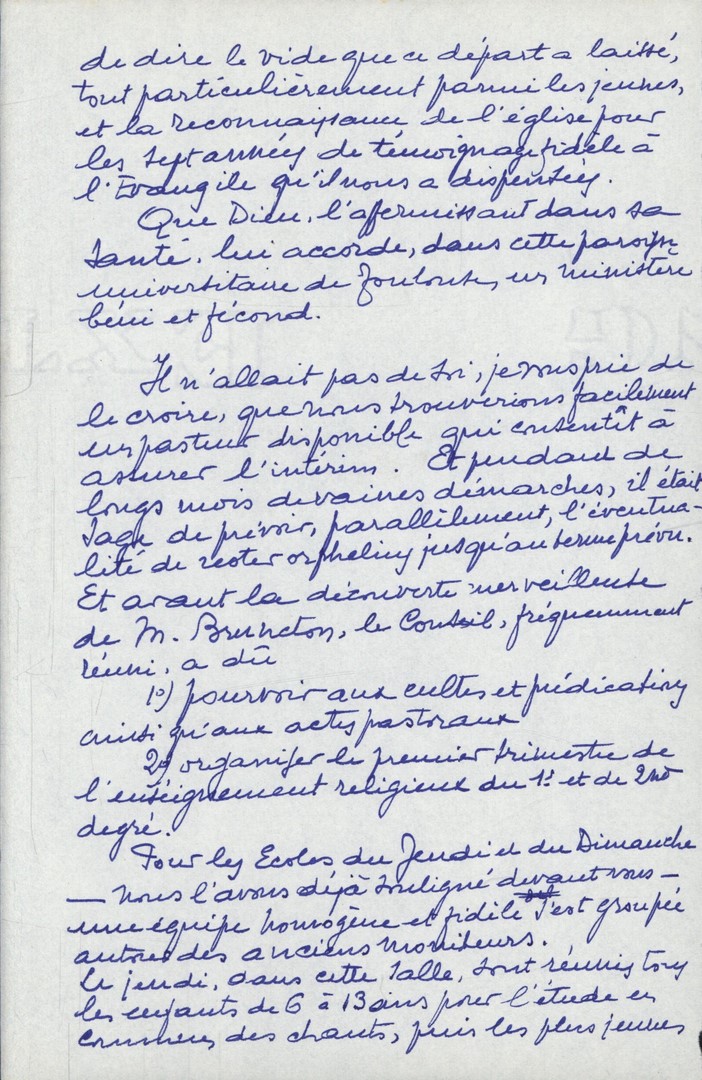 de dire le vide que ce départ a laissé,
tout particulièrement parmi les jeunes,
et la reconnaissance de l'église pour
les sept années de témoignage fidèle à
l'Évangile qu'il nous a dispensées.
Que Dieu, l'afermissant dans sa
santé, lui accorde, dans cette paroisse
universitaire de Toulouse, un ministère
béni et fécond.
Il n'allait pas de soi, je vous prie de
le croire, que nous trouverions facilement
un pasteur disponible qui consentît à
assurer l'intérim. Et pendant de
longs mois de vaines démarches, il était
sage de prévoir, parallèlement, l'éventua-
lité de rester orphelins jusqu'au terme prévu.
Et avant la découverte merveilleuse
de M. Bruneton, le Conseil, fréquemment
réuni, a dû
1º) pourvoir aux cultes et prédications
ainsi qu'aux actes pastoraux
2º) organiser le premier trimestre de
l'enseignement religieux du 1er et de 2nd
degré.
Pour les Ecoles du Jeudi et du Dimanche
— nous l'avons déjà souligné devant vous —
une équipe homogène et fidèle s'est groupée
autour des anciens moniteurs.
Le jeudi, dans cette salle, sont réunis tous
les enfants de 6 à 13 ans pour l'étude en
commun des chants, puis les plus jeunes